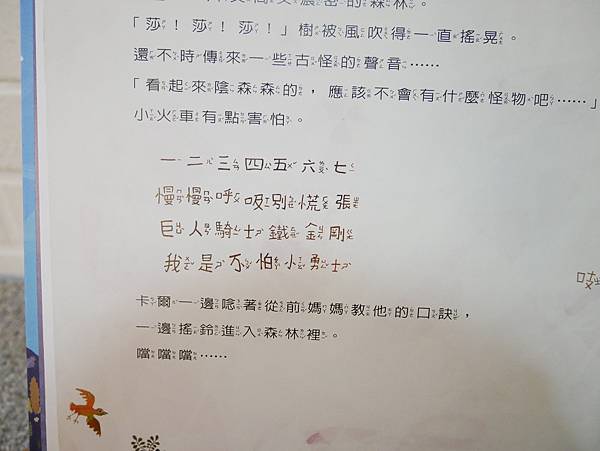 濃密的森林。
「莎！莎！莎！」樹被風吹得一直搖晃。
還不時傳來一些古怪的聲音……
「看起來陰森森的，應該不會有什麼怪物吧……」
小火車有點害怕。
一二三四五六七
慢慢呼吸別慌張
巨人騎士鐵金剛
我是不怕小勇士
卡爾一邊唸著從前媽媽教他的口訣，
一邊搖鈴進入森林裡。
噹噹噹……